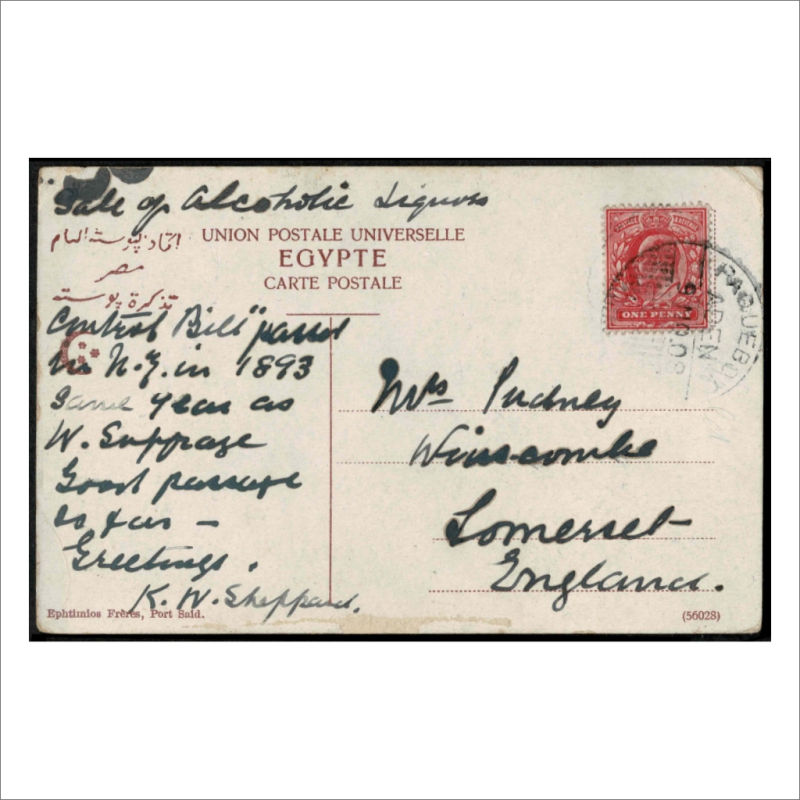 Sale of Alcoholic Liquors
اتحاد بوستة العام
UNION POSTALE UNIVERSELLE
مصر
EGYPTE
تذكرة بوستة
CARTE POSTALE
Control Bill" passed
in N.Z. in 1893
Same year as
W. Suffrage
Good passage
so far –
Greetings.
K. W. Sheppard.
Mrs Pudney
Winscombe
Somerset
England.
ONE PENNY
PAQUEBOT
ADEN
08
Ephtimios Frères, Port Said.
(56028)